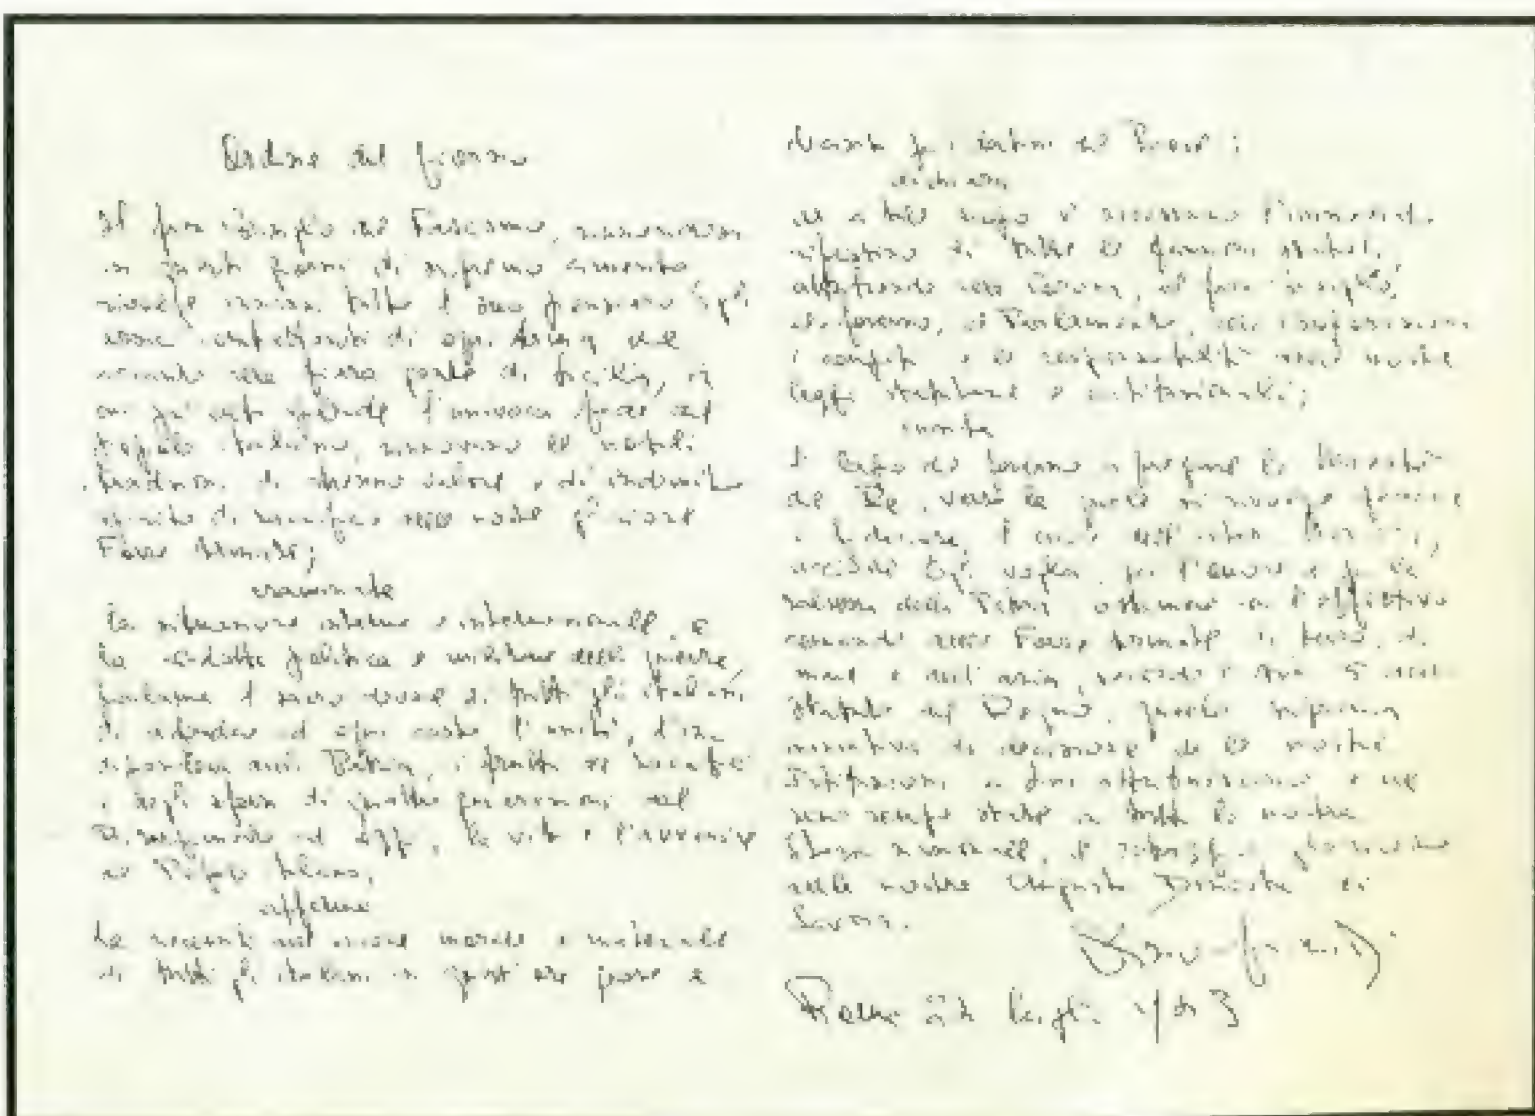 Ordine del giorno
Il Gran Consiglio del Fascismo,
in questi giorni di supremo cimento,
volge innanzi tutto il suo pensiero agli
eroici combattenti di ogni Arma che
con la fiera gente di Sicilia, in
cui più alta risplende l'univoca fede del
popolo italiano, rinnovano le nobili
tradizioni di strenuo valore e di indomito
spirito di sacrificio delle nostre gloriose
Forze Armate;
esaminata
la situazione interna e internazionale, e
la condotta politica e militare della guerra,
proclama il sacro dovere di tutti gli italiani
di difendere ad ogni costo l'unità, l'in-
dipendenza della Patria, i frutti dei sacrifici
e degli sforzi di quattro generazioni dal
Risorgimento ad oggi, la vita e l'avvenire
del Popolo italiano;
afferma
la necessità dell'unione morale e materiale
di tutti gli italiani in quest'ora grave e
decisiva per i destini del Paese;
dichiara
che a tale scopo è necessario l'immediato
ripristino di tutte le funzioni statali,
attribuendo alla Corona, al Gran Consiglio,
al Governo, al Parlamento, alle Corporazioni
i compiti e le responsabilità dalle nostre
leggi statutarie e costituzionali;
invita
il Capo del Governo a pregare la Maestà
del Re, verso la quale si rivolge fedele
e fiducioso, il cuore di tutta la Nazione,
affinché Egli voglia, per l'onore e per la
salvezza della Patria assumere con l'effettivo
comando delle Forze Armate di terra, di
mare e dell'aria, secondo l'Art. 5 dello
Statuto del Regno, quella suprema
iniziativa di decisione che le nostre
Istituzioni a Lui attribuiscono e che
sono sempre state in tutta la nostra
storia nazionale, il retaggio glorioso
della nostra Augusta Dinastia di
Savoia.
Dino Grandi